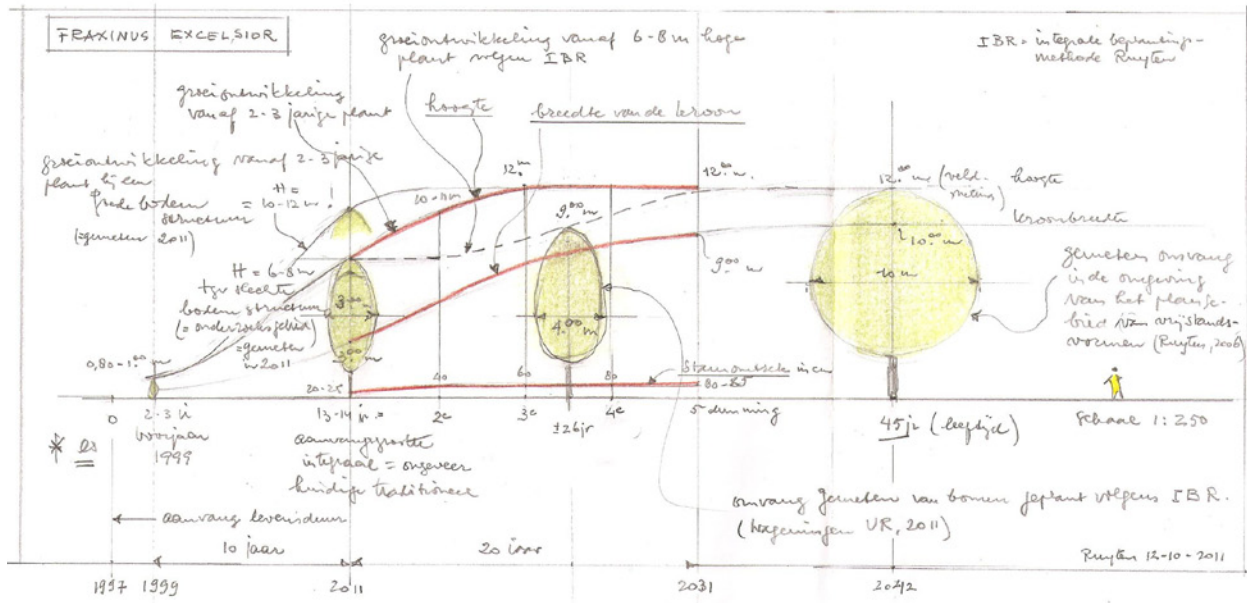 FRAXINUS EXCELSIOR
groeiontwikkeling vanaf 6-8 m hoge
plant volgens IBR
IBR = integrale beplantings-
methode Ruyten
groeiontwikkeling
vanaf 2-3 jarige plant
hoogte
breedte van de kroon
groeiontwikkeling vanaf 2-3 jarige
plant bij een
goede bodem
structuur
(=gemeten 2011)
H =
= 10-12 m!
10-11 m
12.00 m
12.00 m.
12.00 m (veld-
meting)
hoogte
kroonbreedte
10.00 m
9.00 m
9.00 m
H = 6-8 m
tgv slechte
bodem structuur
(= onderzoeksgebied)
=gemeten
in 2011
3.00 m
2.00 m
4.00 m
10 m
gemeten omvang
in de omgeving
van het plange-
bied van vrijstands-
vormen (Ruyten, 2006)
0,80-1.00 m
20-25
40
60
80
stamomtrek in cm
80-85
0
2-3 jr
voorjaar
1999
13-14 jr =
2e
3e
±26jr
4e
5 dunning
45 jr (leeftijd)
schaal 1:250
* es
aanvangsgrootte
integraal = ongeveer
huidige traditioneel
omvang gemeten van bomen geplant volgens IBR.
(Wageningen UR, 2011)
aanvang levensduur
10 jaar
20 jaar
Ruyten 12-10-2011
1997
1999
2011
2031
2042